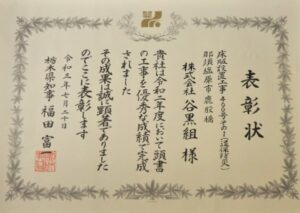 表彰状
床版設置工事
那須塩原市鹿股橋
株式会社 谷黒組 様
貴社は令和二年度において頭書
の工事を優秀な成績で完成
されました
その成果は誠に顕著でありました
のでここに表彰します
令和三年七月三十日
栃木県知事 福田富一